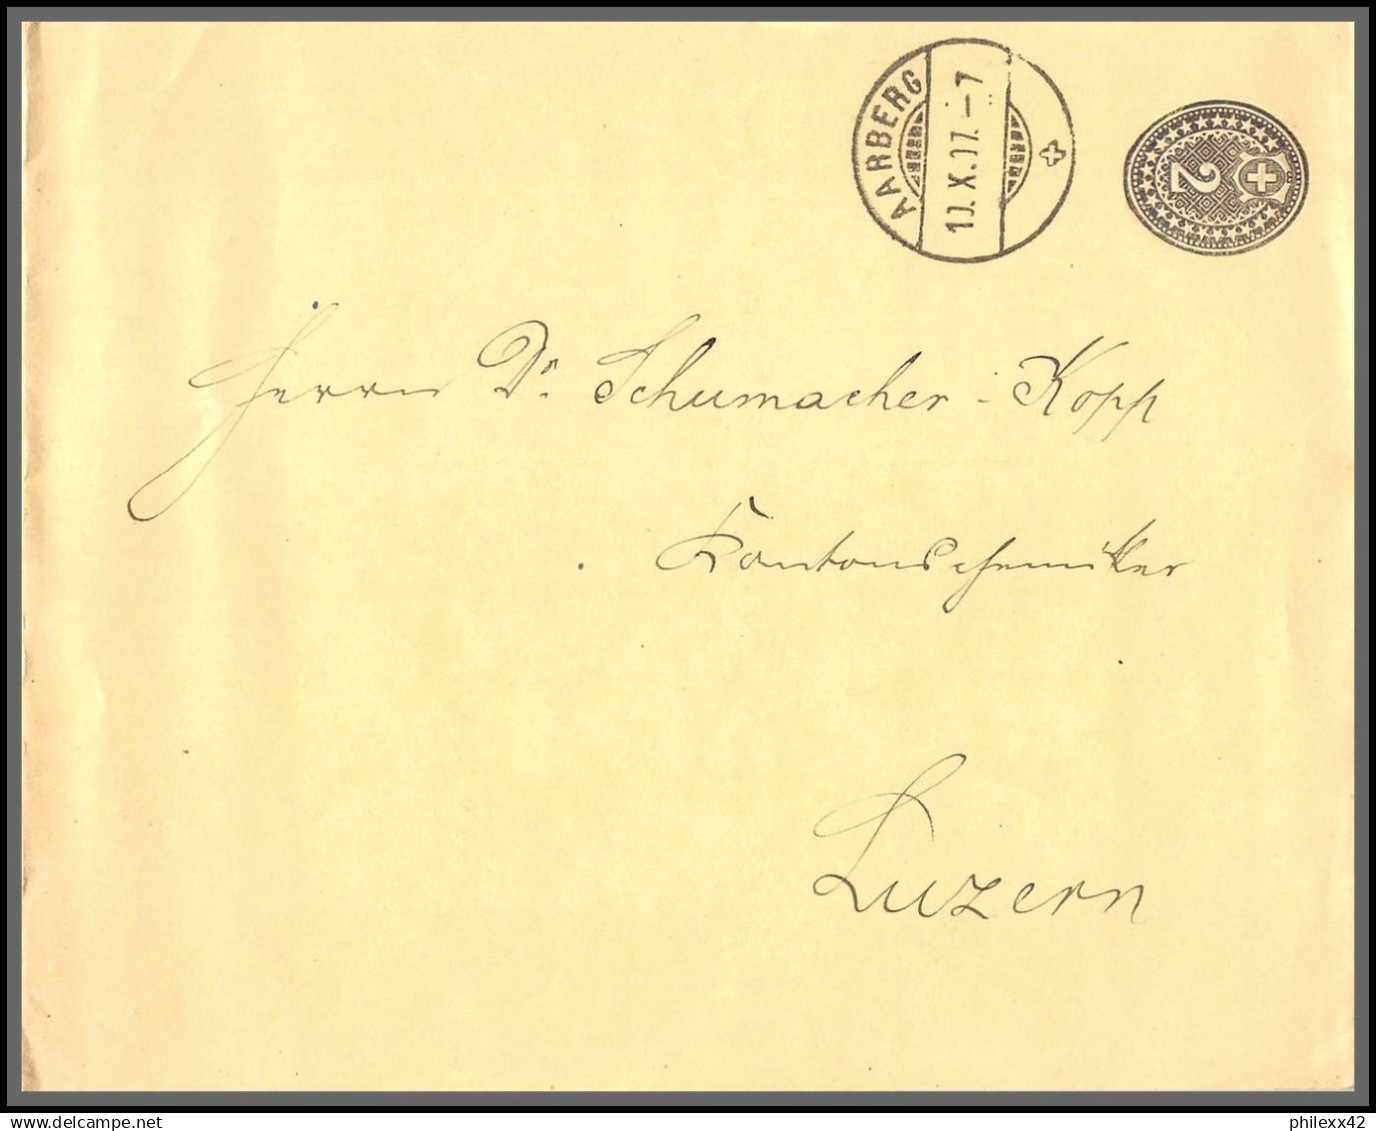 AARBERG
10.X.07.–7
2
Herrn Dr. Schumacher-Kopp
Kantonschemiker
Luzern
philexx42